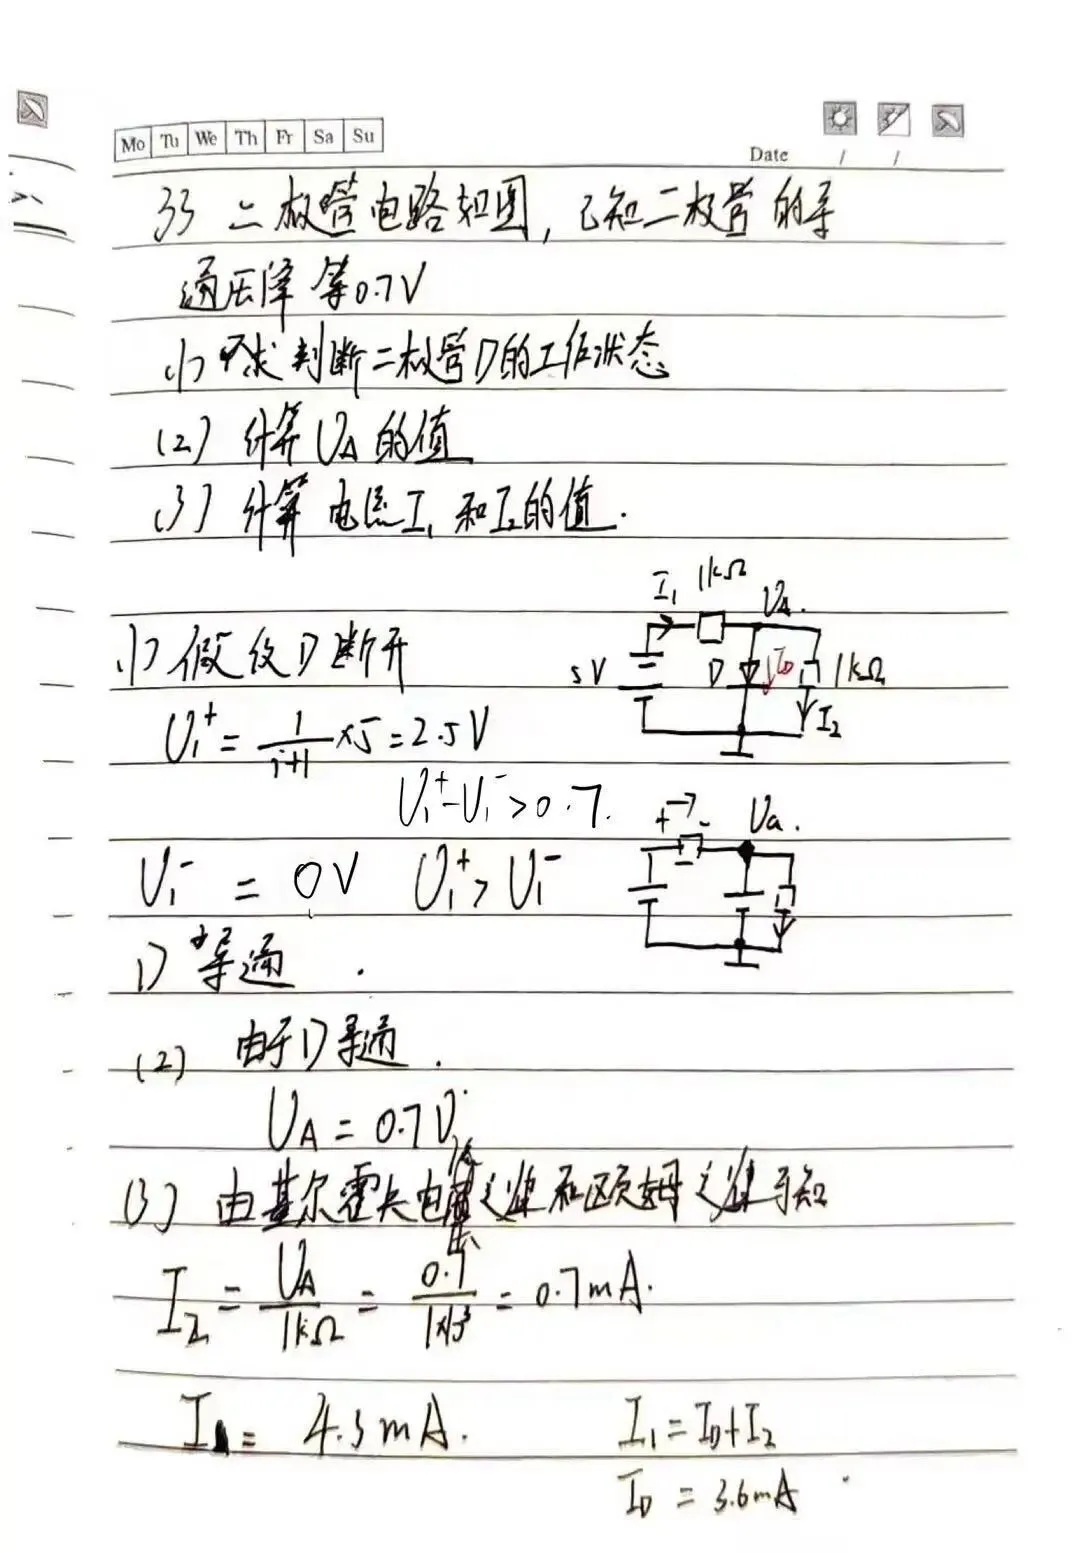 Mo Tu We Th Fr Sa Su
Date / /
33 二极管电路如图，已知二极管的导
通压降等0.7V
(1) 求判断二极管D的工作状态
(2) 计算UA的值
(3) 计算电流I1和I2的值.
I1 1kΩ UA.
5V D ID 1kΩ
I2
(1) 假设D断开
U1+ = 1/(1+1) ×5 = 2.5V
U1+-U1- >0.7.
+ → - Ua.
U1- = 0V U1+> U1-
D 导通.
(2) 由于D导通.
UA = 0.7V.
(3) 由基尔霍夫电流定律和欧姆定律可知
I2 = UA/1kΩ = 0.7/1×10³ = 0.7mA.
I1 = 4.3mA. I1 = ID+I2
ID = 3.6mA